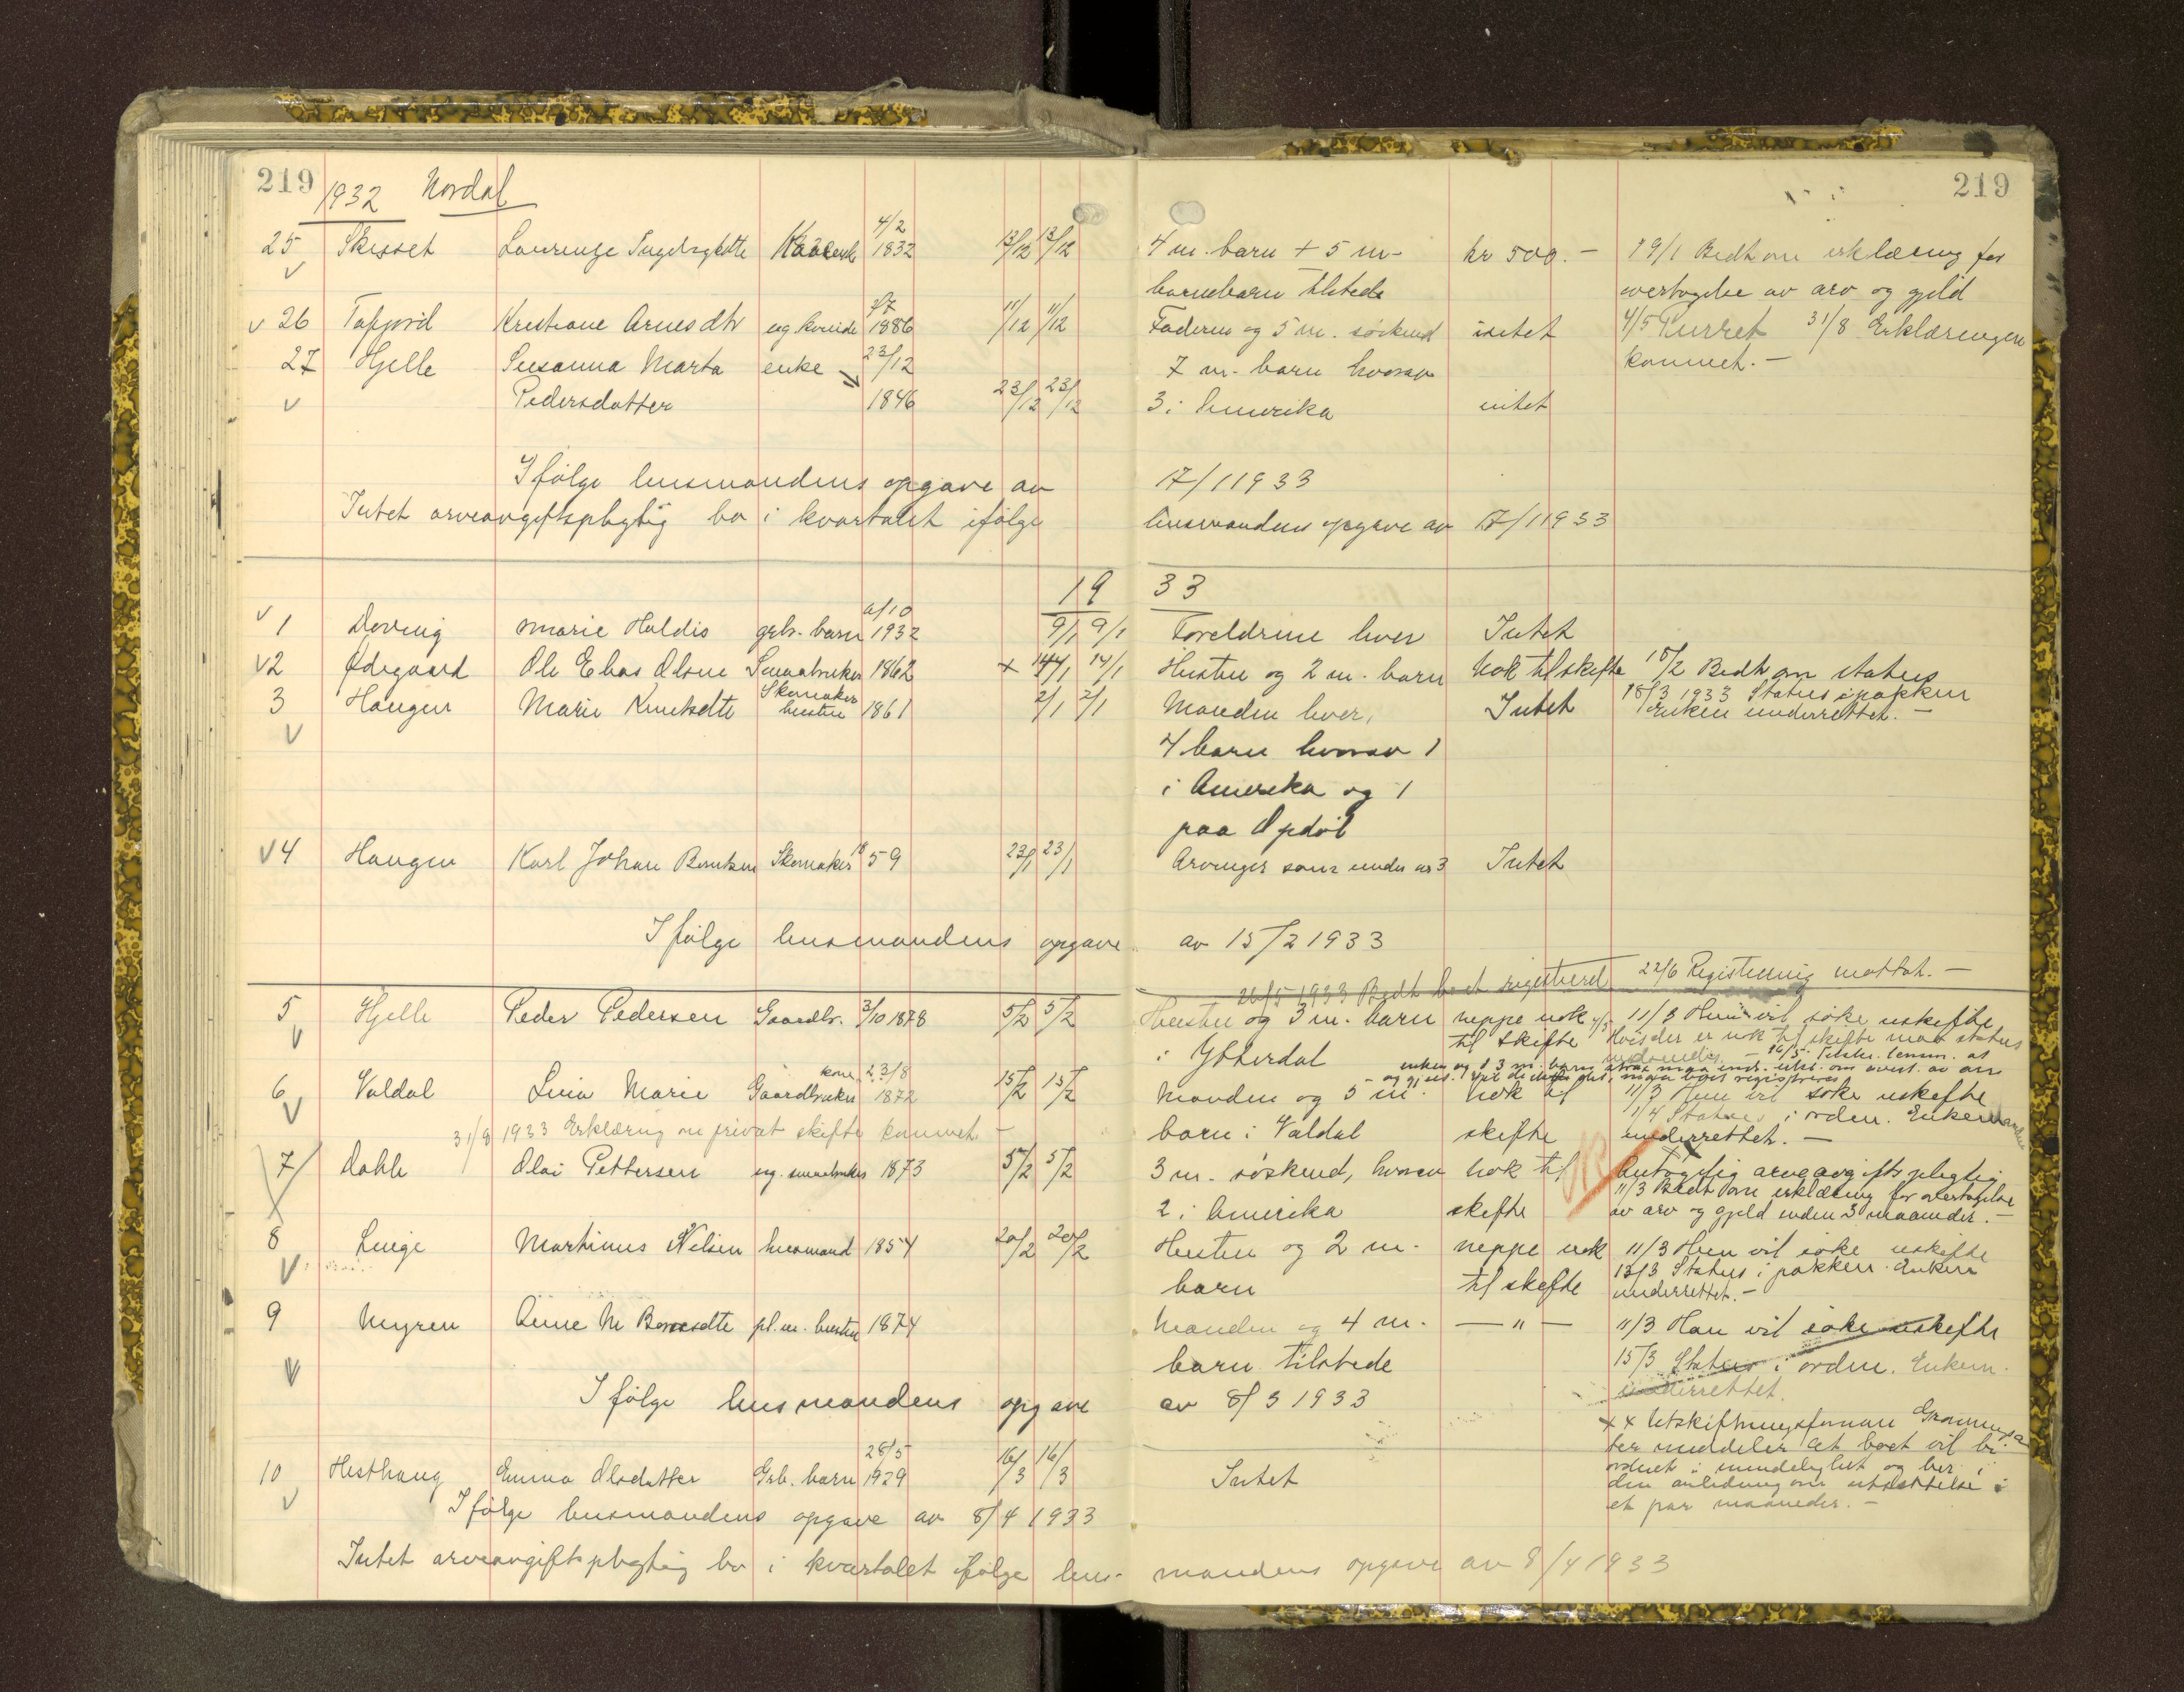 219
219
1932 Nordal
25 Skisset Laurenze 4/2 1832 13/12 13/12 4 m. barn + 5 m- kr 500.- 19/1 Bedt om erklæring for
barnebarn tilstede overtagelse av arv og gjeld
v 26 Tafjord Kristiane Arnesdtr ug. kvinde 1886 11/12 11/12 Faderen og 5 m. søskend intet 4/5 Purret 31/8 Erklæringen
27 Hjelle Susanna Marta enke 23/12 7 m. barn hvorav kommet.-
v Pedersdatter 1846 23/12 23/12 3 i Amerika intet
Ifølge lensmandens opgave av 17/1 1933
Intet arveavgiftspligtig bo i kvartalet ifølge lensmandens opgave av 17/1 1933
1933
v 1 Døving Marie Haldis grb. barn 1932 9/1 9/1 Foreldrene lever Intet
v 2 Ødegaard Ole Elias Olsen Smaabruker 1862 x 14/1 14/1 Hustru og 2 m. barn Nok til skifte 18/2 Bedt om status
18/3 1933 Status i pakken
3 Haugen Marie Knutsdtr Skomaker hustru 1861 2/1 2/1 Manden lever, Intet Enken underrettet.-
v 4 barn hvorav 1
i Amerika og 1
paa Opdøl
v 4 Haugen Karl Johan Berntsen Skomaker 1859 23/1 23/1 Arvinger som under nr 3 Intet
Ifølge lensmandens opgave av 15/2 1933
26/5 1933 Bedt boet registreret 22/6 Registrering mottat.-
5 Hjelle Peder Pedersen Gaardbr. 3/10 1878 5/2 5/2 Hustru og 3 m. barn neppe nok 11/3 Hun vil søke uskifte
v i Ytterdal til skifte Hvis der er nok til skifte maa status
indsendes.- 16/5
6 Valdal Lina Marie kone Gaardbruker 23/8 1872 15/2 15/2 Manden og 5 m. Nok til 11/3 Hun vil søke uskifte
v barn i Valdal skifte 1/4 Status i orden. Enkemanden
31/8 1933 Erklæring om privat skifte kommet.- underrettet.-
7 Dahle Olai Pettersen ug. smaabruker 1873 5/2 5/2 3 m. søskend, hvorav Nok til Antagelig arveavgiftspligtig
2 i Amerika skifte 11/3 Bedt om erklæring for overtagelse
av arv og gjeld inden 3 maaneder.-
8 Linge Martinus Nilsen husmand 1854 20/2 20/2 Hustru og 2 m. neppe nok 11/3 Hun vil søke uskifte
v barn til skifte 13/3 Status i pakken. Enken
underrettet.-
9 Myren Anne M pl. m. hustru 1874 Manden og 4 m. - " - 11/3 Han vil søke uskifte
v barn tilstede 15/3 Status i orden. Enkem.
underrettet.
Ifølge lensmandens opgave av 8/3 1933
x x Utskiftningsformann
meddeler at boet vil bli
10 Hesthaug Emma Olsdatter Grb. barn 28/5 1929 16/3 16/3 Intet ordnet i mindelighet og ber i
v den anledning om utsættelse i
et par maaneder.-
Ifølge lensmandens opgave av 8/4 1933
Intet arveavgiftspligtig bo i kvartalet ifølge lens- mandens opgave av 8/4 1933